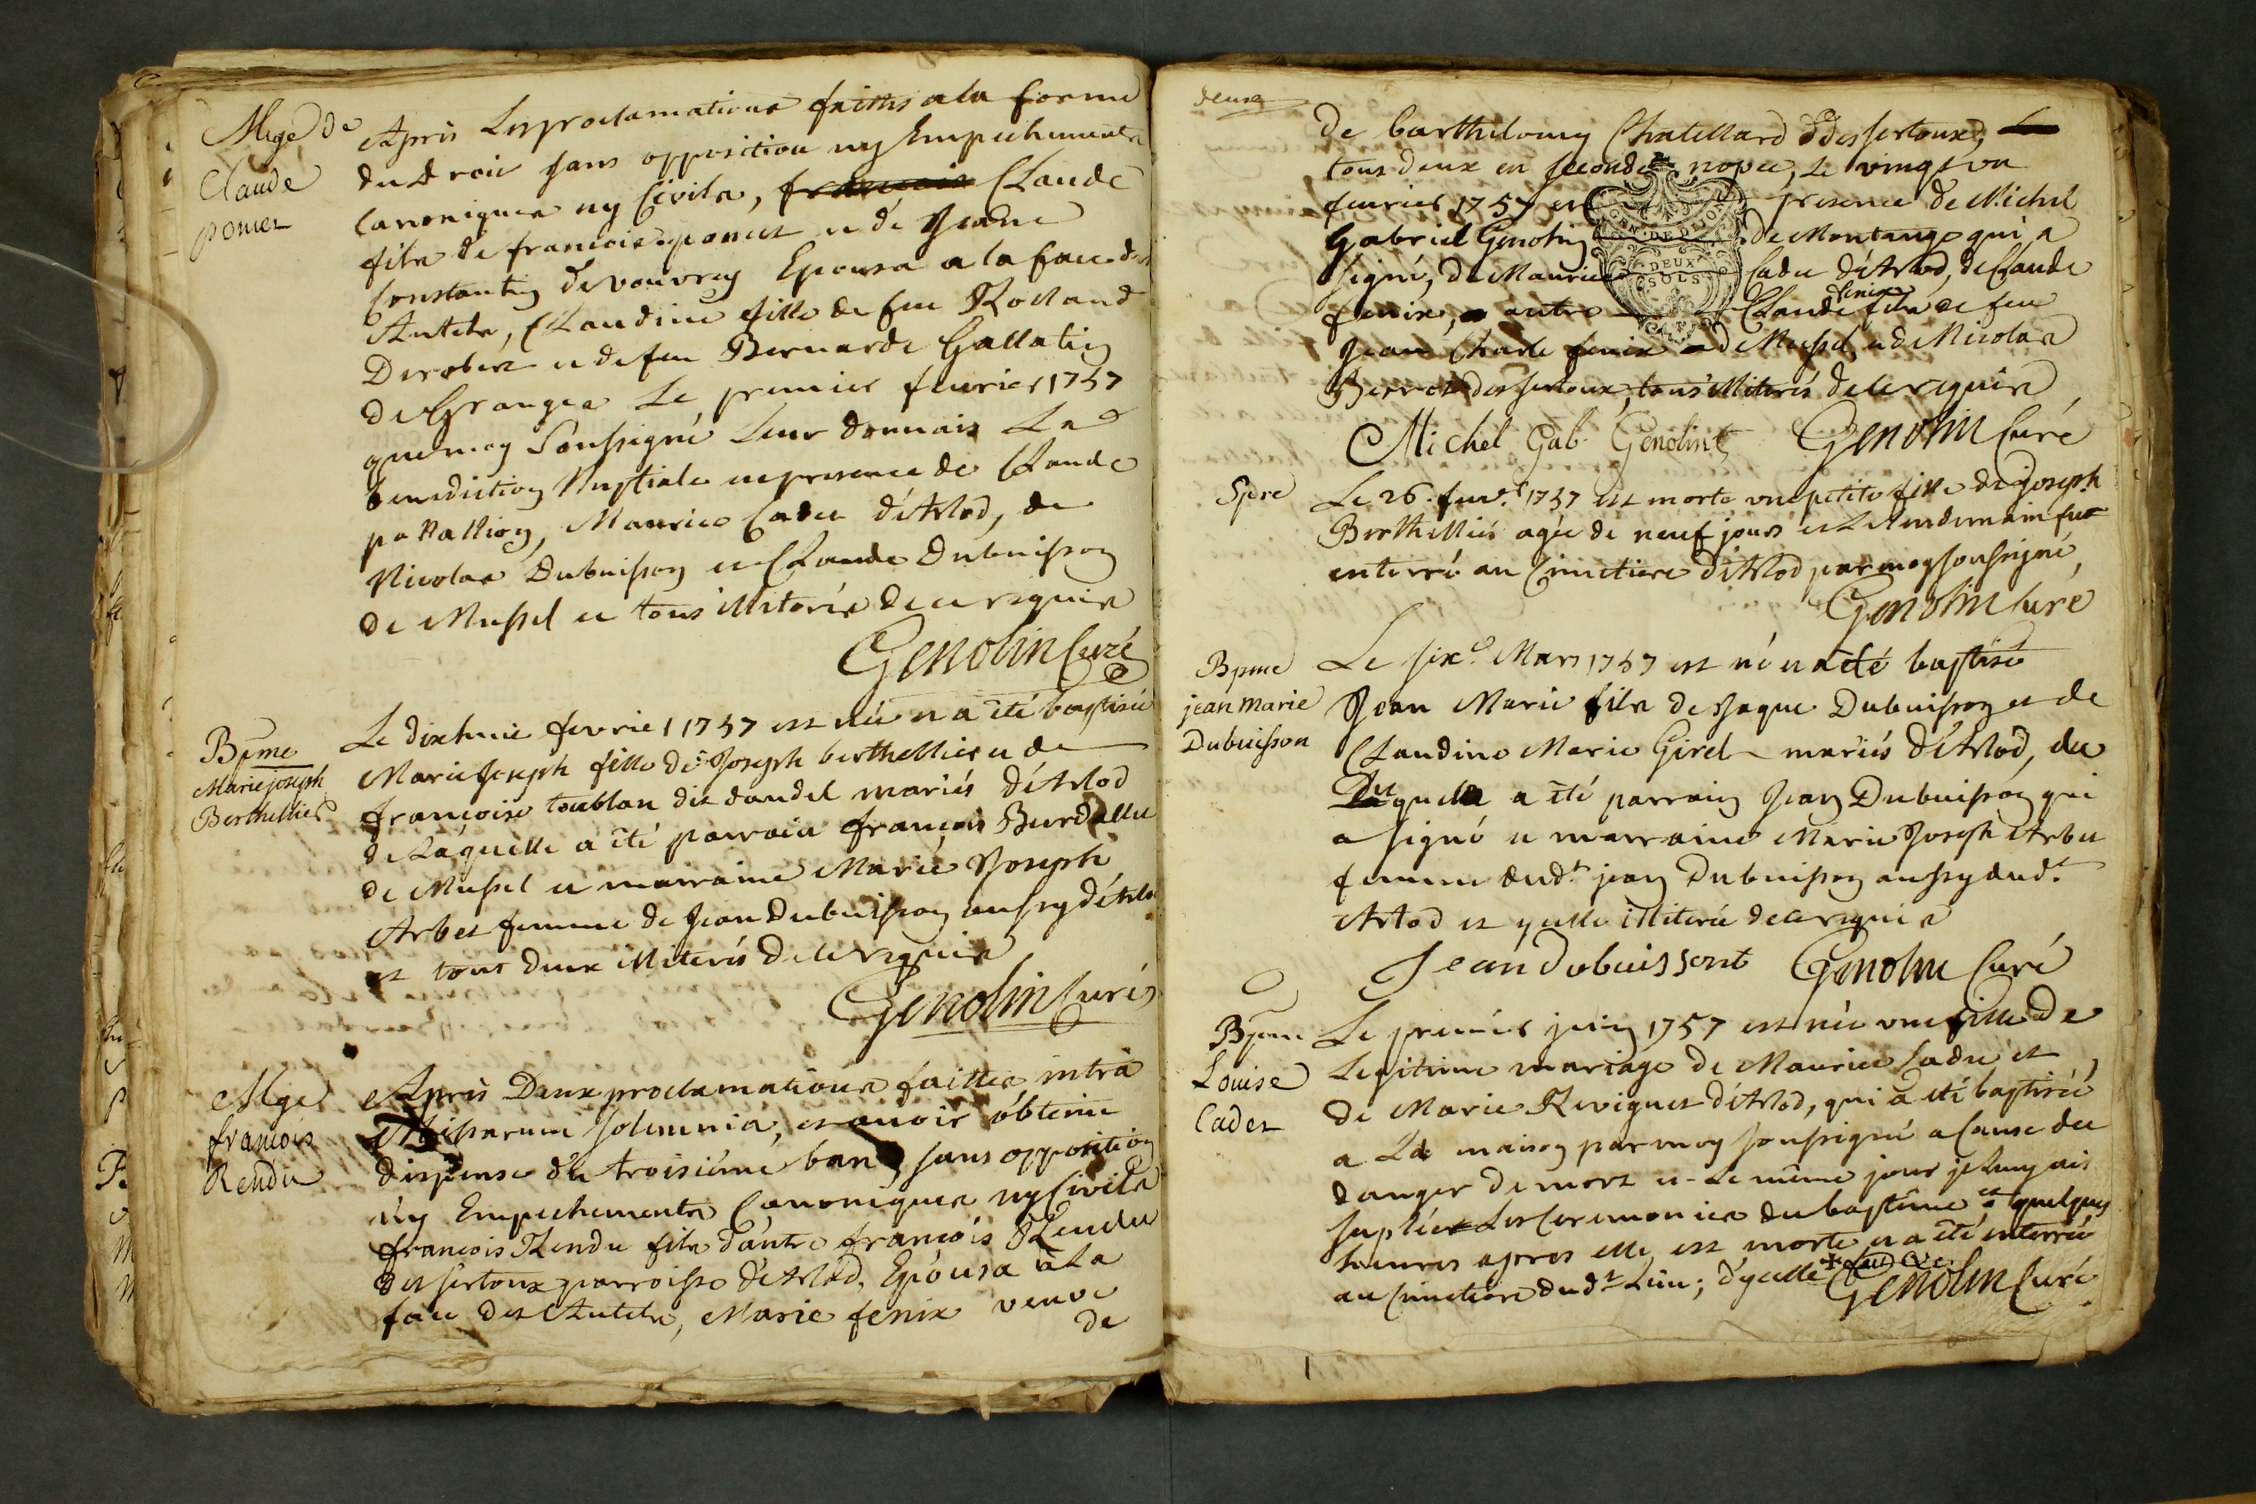 Mge de
Claude
ponet
Apris Les proclamations faittes a la forme
du Droit sans opposition ny Empechements
Canoniques ny Civils, francois Claude
fils de francois ponet et de Jeanne
Constantin de vouvray Epousa a la face des
Autels, Claudine fille de feu Rolland
Derobert et de feu Bernarde Gallatin
de Granges Le premier fevrier 1757
que moy Soussigné Leur donnais La
benediction Nuptiale en presence de Claude
pattallion, Maurice Cadet d'Arlod, de
Nicolas Dubuisson et Claude Dubuisson
de Mussel et tous illiterés de ce requis
Genolin Curé
Bpme
Marie joseph
Berthellier
Le dixhuit fevrier 1757 est née et a été baptisée
Marie Joseph fille de Joseph berthellier et de
françoise toublan dit dandel mariés d'Arlod
de Laquelle a été parrain françois Burdallet
de Mussel et marraine Marie Joseph
Arbet femme de Jean Dubuisson aussy d'Arlod
et tout deux illiterés de ce requis
Genolin Curé
Mge
francois
Rendu
Apris Deux proclamations faittes intra
Missarum solemnia, et avoir obtenu
dispense du troisiéme ban sans opposition
ny Empechements Canoniques ny Civils
françois Rendu fils d'autre françois Rendu
des sertoux parroisse d'Arlod, Epousa a La
face des Autels, Marie fenix veuve
de
deuse
de barthelomy Chatellard des sertoux,
tous deux en secondes nopces, Le vingt un
fevrier 1757 en presence de Michel
Gabriel Genolin de Montange qui a
signé, de Maurice Cadet d'Arlod, de Claude
fenix, autre Claude fenix fils de feu
Jean Charle fenix de Mussel, et de Nicolas
Berrot des sertoux, tous illiterés de ce requis
GEN. DE DIJON
DEUX
SOLS
Michel Gab. Genolint Genolin Curé
Spre
Le 26. fevr. 1757 est morte une petite fille de Joseph
Berthellier agée de neuf jours et Le lendemain fut
enterré au Cimetiere d'Arlod par moy soussigné,
Genolin Curé
Bpme
jean marie
Dubuisson
Le six Mars 1757 est né et a été baptisé
Jean Marie fils de Jaque Dubuisson et de
Claudine Marie Girel mariés d'Arlod, du
Duquel a été parrain Jean Dubuisson qui
a signé et marraine Marie Joseph Arbet
femme dudt. jean Dubuisson aussy dudt.
Arlod et ycelle illiterée de ce requise
Jean dubuissont Genolin Curé
Bpme
Louise
Cadet
Le premier juin 1757 est née une fille de
Legitime mariage de Maurice Cadet et
de Marie Revignet d'Arlod, qui a été baptisée
a La maison par moy soussigné a Cause du
danger de mort et Le même jour je Luy ais
supléer Les Ceremonies du baptême et quelques
heures apres elle est morte et a été enterrée
au Cimetiere dudt Lieu; d'ycelle
Genolin Curé